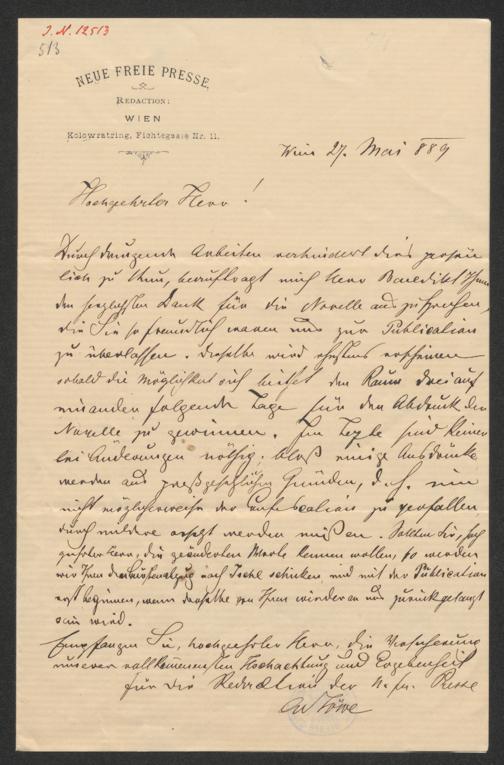 J. N. 12513
513
NEUE FREIE PRESSE.
REDACTION:
WIEN
Kolowratring, Fichtegasse Nr. 11.
Wien 27. Mai 889
Hochgeehrter Herr!
Durch dringende Arbeiten verhindert dies persön
lich zu thun, beauftragt mich Herr Benedikt Ihnen
den herzlichsten Dank für die Novelle auszusprechen,
die Sie so freundlich waren uns zur Publication
zu überlassen. Dieselbe wird ehestens erscheinen
sobald die Möglichkeit sich bietet den Raum dreier auf
einander folgende Tage für den Abdruck der
Novelle zu gewinnen. Im Texte sind keiner
lei Änderungen nöthig; bloß einige Ausdrücke
werden aus preßgesetzlichen Gründen, d. h. um
nicht möglicherweise der Confiscation zu verfallen
durch mildere ersetzt werden müßen. Sollten Sie, hoch
geehrter Herr, die geänderten Worte kennen wollen, so werden
wir Ihnen den Bürstenabzug nach Ischl schicken und mit der Publication
erst beginnen, wenn derselbe von Ihnen wieder an uns zurückgelangt
sein wird.
Empfangen Sie, hochgeehrter Herr, die Versicherung
unserer vollkommensten Hochachtung und Ergebenheit
für die Redaction der N. fr. Presse
Löwe